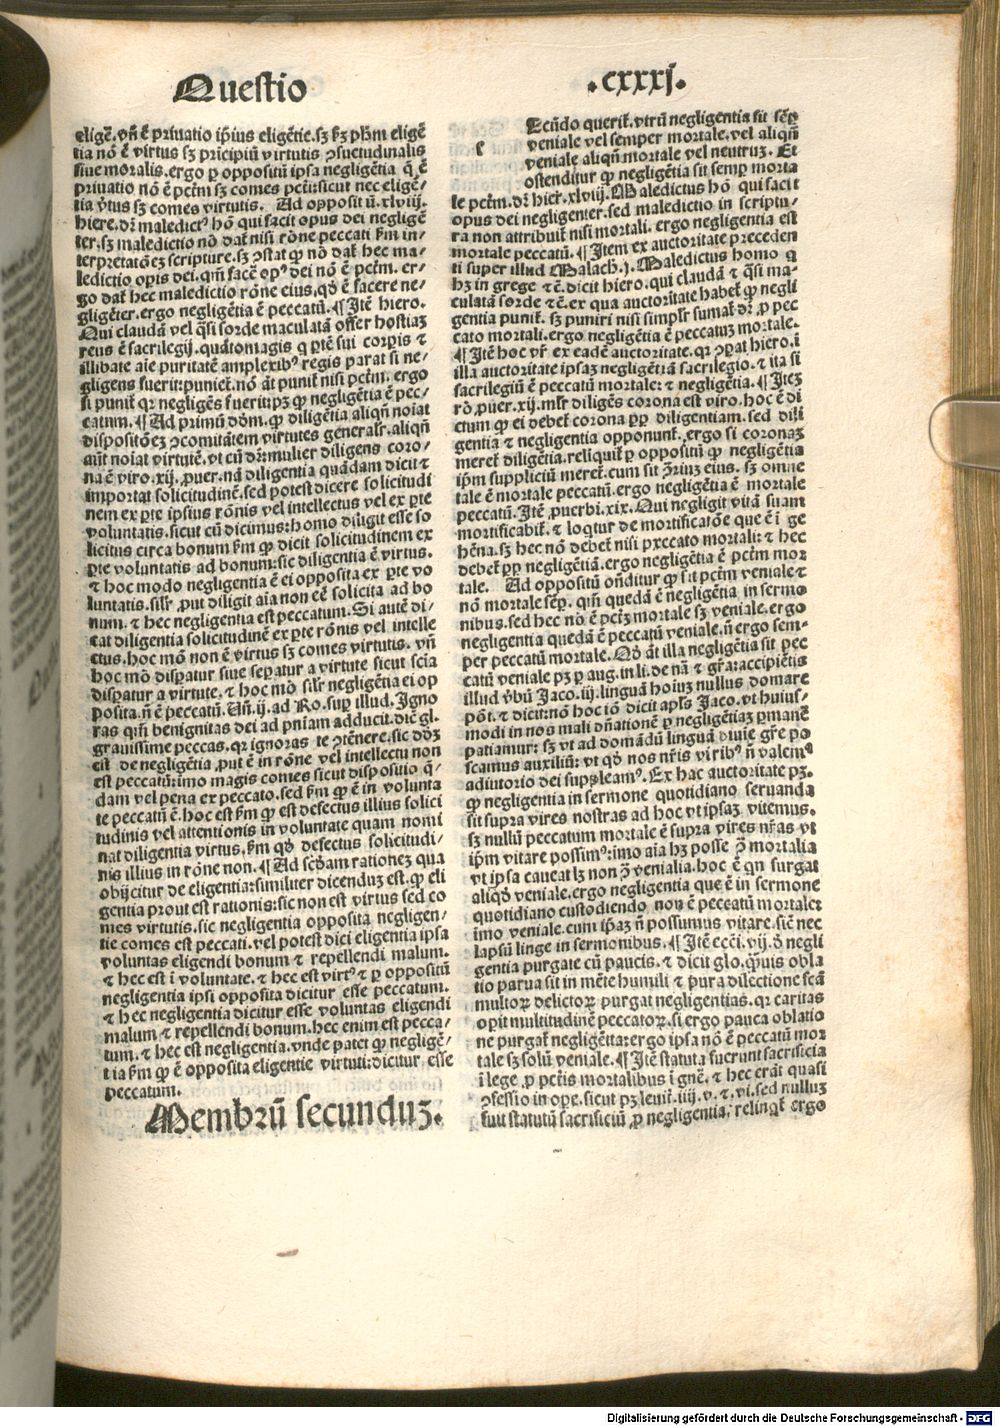 Questio
.cxxxj.
eligẽ. vñ ẽ priuatio ip̃ius eligẽtie. sꝫ ẜm ph̃m eligẽ
tia nõ ẽ virtus sꝫ prĩcipiũ virtutis ꝯsuetudinalis
siue moralis. ergo p oppositũ ipsa negligẽtia q̃ ẽ
priuatio nõ ẽ pctm̃ sꝫ comes pcti: sicut nec eligẽ/
tia v̾tus sꝫ comes virtutis. Ad opposit ũ. xlviij.
hiere. dr̃ maledictꝰ hõ qui facit opus dei negligẽ
ter. sꝫ maledictio nõ dat̃ nisi rõne peccati ẜm in/
terpretatõeꝫ scripture. sꝫ ꝯstat ꝙ nõ dat̃ hec ma/
ledictio opis dei. qm̃ facẽ opꝰ dei nõ ẽ pctm̃. er/
go dat̃ hec maledictio rõne eius. qđ ẽ facere ne/
gligẽter. ergo negligẽtia ẽ peccatũ. ¶ Itẽ hiero.
Qui claudã vel q̃si sorde maculatã offer hostiaꝫ
reus ẽ sacrilegij. quãtomagis q pte sui corpis ⁊
illibate aie puritatẽ amplexibꝰ regis parat si ne/
gligens fuerit: puniet̃. nõ at̃ punit̃ nisi pctm̃. ergo
si punit̃ qꝛ negligẽs fuerit: pꝫ ꝙ negligẽtia ẽ pec/
catum. ¶ Ad primũ dõm. ꝙ diligẽtia aliqñ noiat
dispositõeꝫ ꝯcomitãtem virtutes generalr̃. aliqñ
aũt noiat virtutẽ. vt cũ dr̃: mulier diligens coro/
na ẽ viro. xij. ꝓuer. nã diligentia quãdam dicit ⁊
importat solicitudinẽ. sed potest dicere solicitudi
nem ex pte ipsius rõnis vel intellectus vel ex pte
voluntatis. sicut cũ dicimus: homo diligit esse so
licitus circa bonum ẜm ꝙ dicit solicitudinem ex
pte voluntatis ad bonum: sic diligentia ẽ virtus.
⁊ hoc modo negligentia ẽ ei opposita ex pte vo
luntatis. silr̃ ꝓut diligit aĩa non eẽ solicita ad bo
num. ⁊ hec negligentia est peccatum. Si autẽ di/
cat diligentia solicitudinẽ ex pte rõnis vel intelle
ctus. hoc mõ non ẽ virtus sꝫ comes virtutis. vñ
hoc mõ dispatur siue sepatur a virtute sicut scĩa
dispatur a virtute. ⁊ hoc mõ silr̃ negligẽtia ei op
posita. ñ ẽ peccatũ. Uñ. ij. ad Ro. sup illud. Igno
ras qm̃ benignitas dei ad pniam adducit. dic̃ gl.
grauissime peccas. qꝛ ignoras te ꝯtẽnere. sic dõꝫ
est de negligẽtia. ꝓut ẽ in rõne vel intellectu non
est peccatũ: imo magis comes sicut dispositio q̃/
dam vel pena ex peccato. sed ẜm ꝙ ẽ in volunta
te peccatũ ẽ. hoc est ẜm ꝙ est defectus illius solici
tudinis vel attentionis in voluntate quam nomi
nat diligentia virtus. ẜm qđ defectus solicitudi/
nis illius in rõne non. ¶ Ad scđam rationeꝫ qua
obijcitur de eligentia: similiter dicenduꝫ est. ꝙ eli
gentia prout est rationis: sic non est virtus sed co
mes virtutis. sic negligentia opposita negligen/
tie comes est peccati. vel potest dici eligentia ipsa
voluntas eligendi bonum ⁊ repellendi malum.
⁊ hec est ĩ voluntate. ⁊ hec est virtꝰ ⁊ p oppositũ
negligentia ipsi opposita dicitur esse peccatum.
⁊ hec negligentia dicitur esse voluntas eligendi
malum ⁊ repellendi bonum. hec enim est pecca/
tum. ⁊ hec est negligentia. vnde patet ꝙ negligẽ/
tia ẜm ꝙ ẽ opposita eligentie virtuti: dicitur esse
peccatum.
Membrũ secunduꝫ.
Ecũdo querit̃. vtrũ negligentia sit sẽp
veniale vel semper mortale. vel aliqñ
veniale aliqñ mortale vel neutruꝫ. Et
ostenditur ꝙ negligẽtia sit semp morta
le pctm̃. dr̃ hier̃. xlviij. Maledictus hõ qui facit
opus dei negligenter. sed maledictio in scriptu/
ra non attribuit̃ nisi mortali. ergo negligentia est
mortale peccatũ. ¶ Item ex auctoritate preceden
ti super illud Malach. j. Maledictus homo q
hꝫ in grege ⁊ẽ. dicit hiero. qui claudã ⁊ q̃si ma/
culatã sorde ⁊ẽ. ex qua auctoritate habet̃ ꝙ negli
gentia punit̃. sꝫ puniri nisi simplr̃ sumat̃ dr̃ ꝓ pec
cato mortali. ergo negligẽtia ẽ peccatuꝫ mortale.
¶ Itẽ hoc vr̃ ex eadẽ auctoritate. qꝛ ꝯpat hiero. ĩ
illa auctoritate ipsaꝫ negligẽtiã sacrilegio. ⁊ ita si
sacrilegiũ ẽ peccatũ mortale: ⁊ negligẽtia. ¶ Iteꝫ
rõ ꝓuer. xij. mlr̃ diligẽs corona est viro. hoc ẽ di
ctum ꝙ ei debet̃ corona ppr̃ diligentiam. sed dili
gentia ⁊ negligentia opponunt̃. ergo si coronaꝫ
meret̃ diligẽtia. reliquit̃ p oppositũ ꝙ negligẽtia
ip̃m suppliciũ meret̃. cum sit ꝯr̃iuꝫ eius. sꝫ omne
tale ẽ mortale peccatũ. ergo negligẽtia ẽ mortale
peccatũ. Itẽ ꝓuerbi. xix. Qui negligit vitã suam
mortificabit̃. ⁊ loqtur de mortificatõe que ẽ ĩ ge
hẽna. sꝫ hec nõ debet̃ nisi pxccato mortali: ⁊ hec
debet̃ ppr̃ negligẽtiã. ergo negligẽtia ẽ pctm̃ mor
tale. Ad oppositũ oñditur ꝙ sit pctm̃ veniale ⁊
nõ mortale sẽp. qm̃ quedã ẽ negligẽtia in sermo
nibus. sed hec nõ ẽ pctꝫ mortale sꝫ veniale. ergo
negligentia quedã ẽ peccatũ veniale. ñ ergo sem/
per peccatũ mortale. Qđ at̃ illa negligẽtia sit pec
catũ veniale pꝫ p aug. in li. de nã ⁊ gr̃a: accipiẽtis
illud v̾bũ Jaco. iij. linguã hoiuꝫ nullus domare
põt. ⁊ dicit: nõ hoc iõ dicit apl̃s Jaco. vt huiuſ/
modi in nos mali dñationẽ p negligẽtiaꝫ pmanẽ
patiamur: sꝫ vt ad domãdũ linguã diuĩe gr̃e po
scamus auxiliũ: vt qđ nos nr̃is viribꝰ ñ valemꝰ
adiutorio dei suppleamꝰ. Ex hac auctoritate pꝫ.
ꝙ negligentia in sermone quotidiano seruanda
sit supra vires nostras ad hoc vt ipsaꝫ vitemus.
sꝫ nullũ peccatum mortale ẽ supra vires nr̃as vt
ip̃m vitare possimꝰ: imo aĩa hꝫ posse ꝯ̃ mortalia
vt ipsa caueat lꝫ non ꝯ̃ venialia. hoc ẽ qñ surgat
aliqđ veniale. ergo negligentia que ẽ in sermone
quotidiano custodiendo non ẽ peccatũ mortale:
imo veniale. cum ip̃aꝫ ñ possumus vitare. sic̃ nec
lapsũ lingue in sermonibus. ¶ Itẽ ecc̃i. vij. đ negli
gentia purgate cũ paucis. ⁊ dicit glo. ꝙ̃uis obla
tio parua sit in mẽte humili ⁊ pura dilectione fcã
multoꝝ delictoꝝ purgat negligentias. qꝛ caritas
opit multitudinẽ peccatoꝝ. si ergo pauca oblatio
ne purgat̃ negligẽtia: ergo ipsa nõ ẽ peccatũ mor
tale sꝫ solũ veniale. ¶ Itẽ statuta fuerunt sacrificia
ĩ lege ꝓ pctĩs mortalibus ĩ gñẽ. ⁊ hec erãt quasi
ꝯfessio in ope. sicut pꝫ leuit̃. iiij. v. ⁊. vi. sed nulluꝫ
fuit statutũ sacrificiũ ꝓ negligentia. relinqt̃ ergo
Digitalisierung gefördert durch die Deutsche Forschungsgemeinschaft - DFG